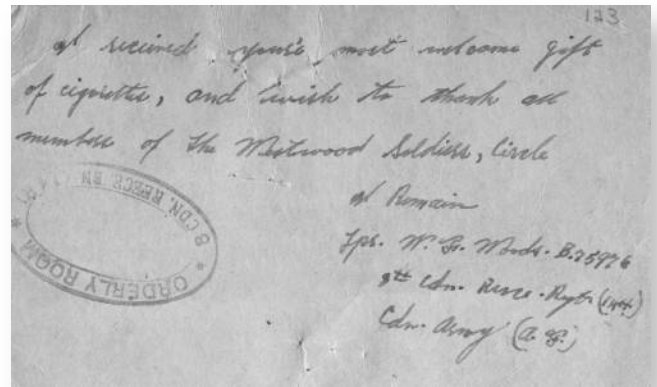 123
I received your's most welcome gift
of cigarettes, and wish to thank all
members of the Westwood Soldiers, Circle
I Remain
W. G. Woods. B.25976
8th Cdn. Recce. Rgt. (14th)
Cdn. Army (A.F.)
8 CDN. RECCE BN
* ORDERLY ROOM *